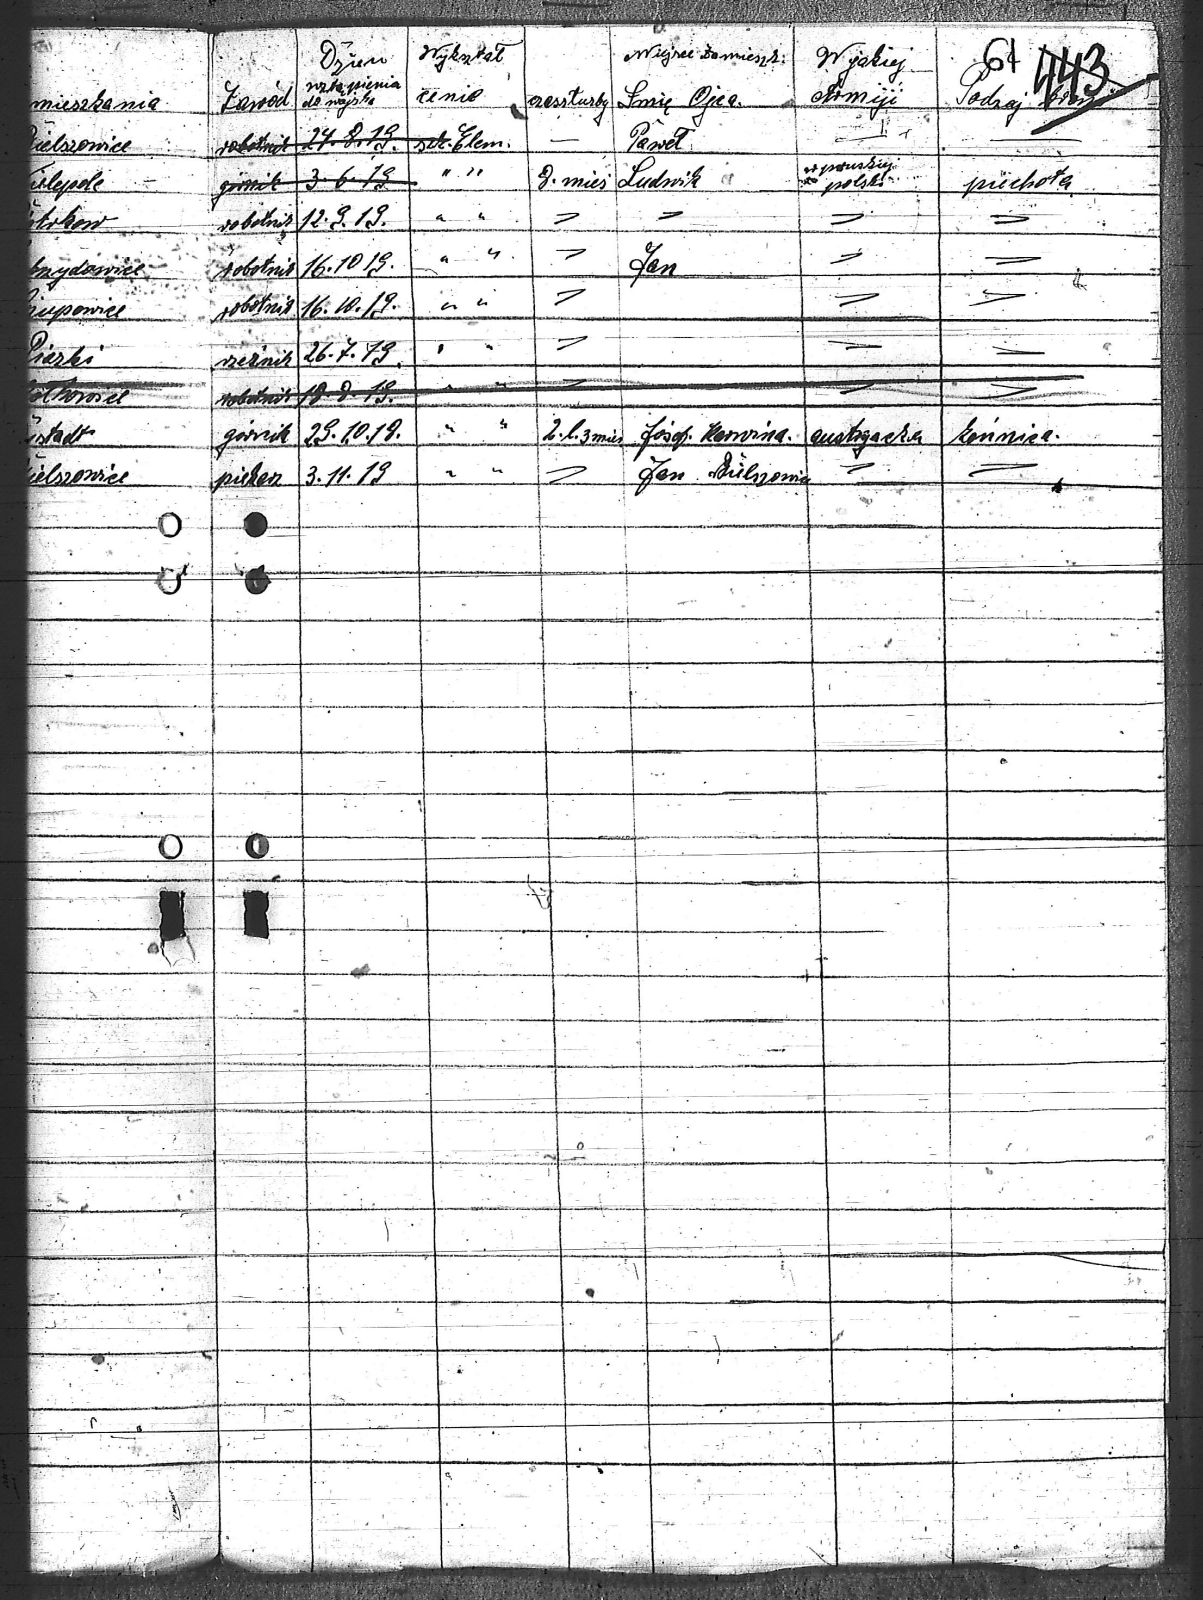 61 443
mieszkania Zawód Dzień wstąpienia do wojska Wykształcenie czas służby Miejsce zamieszk: Imię Ojca. W jakiej Armiji Rodzaj broni
ielszowice robotnik 27.8.19. szk. Elem. — Paweł — —
ülepole górnik 3.6.19 " " 8. mieś Ludwik w pruskiej polski piechota
otrkow robotnik 12.9.19. " " " " " "
robotnik 16.10.19. " " " Jan " "
robotnik 16.10.19. " " " " "
Piaski rzeźnik 26.7.19. " " " " "
robotnik 18.8.19. " " " " "
stadt górnik 29.10.19. " " 2.l.3 mies Józef. Karwina. austryacka konnica.
ielszowice piekarz 3.11.19 " " " Jan Bielszowice " "